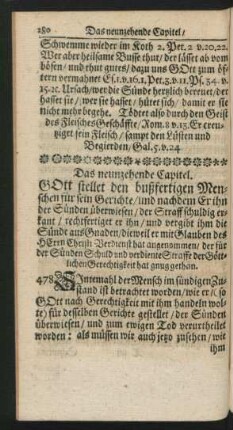 280 Das neunzehende Capitel/
Schwemme wieder im Koth 2. Pet. 2 v.20,22.
Wer aber heilsame Busse thut/ der lässet ab vom
bösen/ und thut gutes/ dazu uns GOtt zum öf-
tern vermahnet Es.1.v.16.1. Pet.3.v.11. Ps. 34. v.
15. Ursach/ wer die Sünde hertzlich bereuet/ der
hasset sie/ wer sie hasset/ hütet sich/ damit er sie
nicht mehr begehe. Tödtet also durch den Geist
des Fleisches Geschäffte/ Rom. 8 v.13. Er creu-
tziget sein Fleisch/ sampt den Lüsten und
Begierden/ Gal. 5. v.24
Das neunzehende Capitel.
GOtt stellet den bußfertigen Men-
schen für sein Gerichte/ und nachdem Er ihn
der Sünden überwiesen/ der Straff schuldig er-
kant/ rechtfertiget er ihn/ und vergibt ihm die
Sünde aus Gnaden/ dieweil er mit Glauben des
HErrn Christi Verdienst hat angenommen/ der für
der Sünden Schuld und verdiente Straffe der Gött-
lichen Gerechtigkeit hat gnug gethon.
478. Sintemahl der Mensch im sündigen Zu-
stand ist betrachtet worden/ wie er/ (so
GOtt nach Gerechtigkeit mit ihm handeln wol-
te) für desselben Gerichte gestellet/ der Sünden
überwiesen/ und zum ewigen Tod verurtheilet
worden: als müssen wir auch jetzo zusehen/ wie
ihm